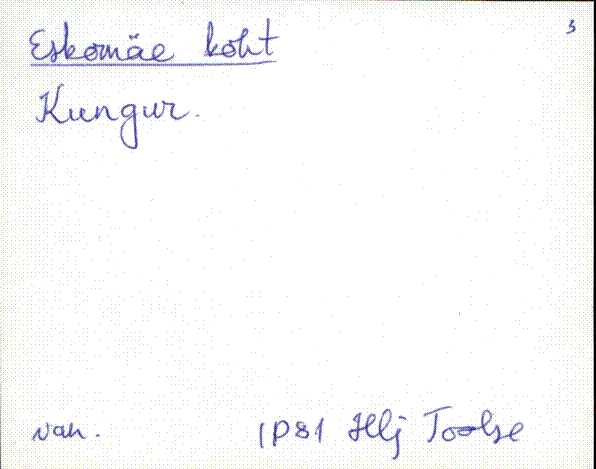 3
Eskomäe koht
Kungur.
van.
1981 Hlj Toolse